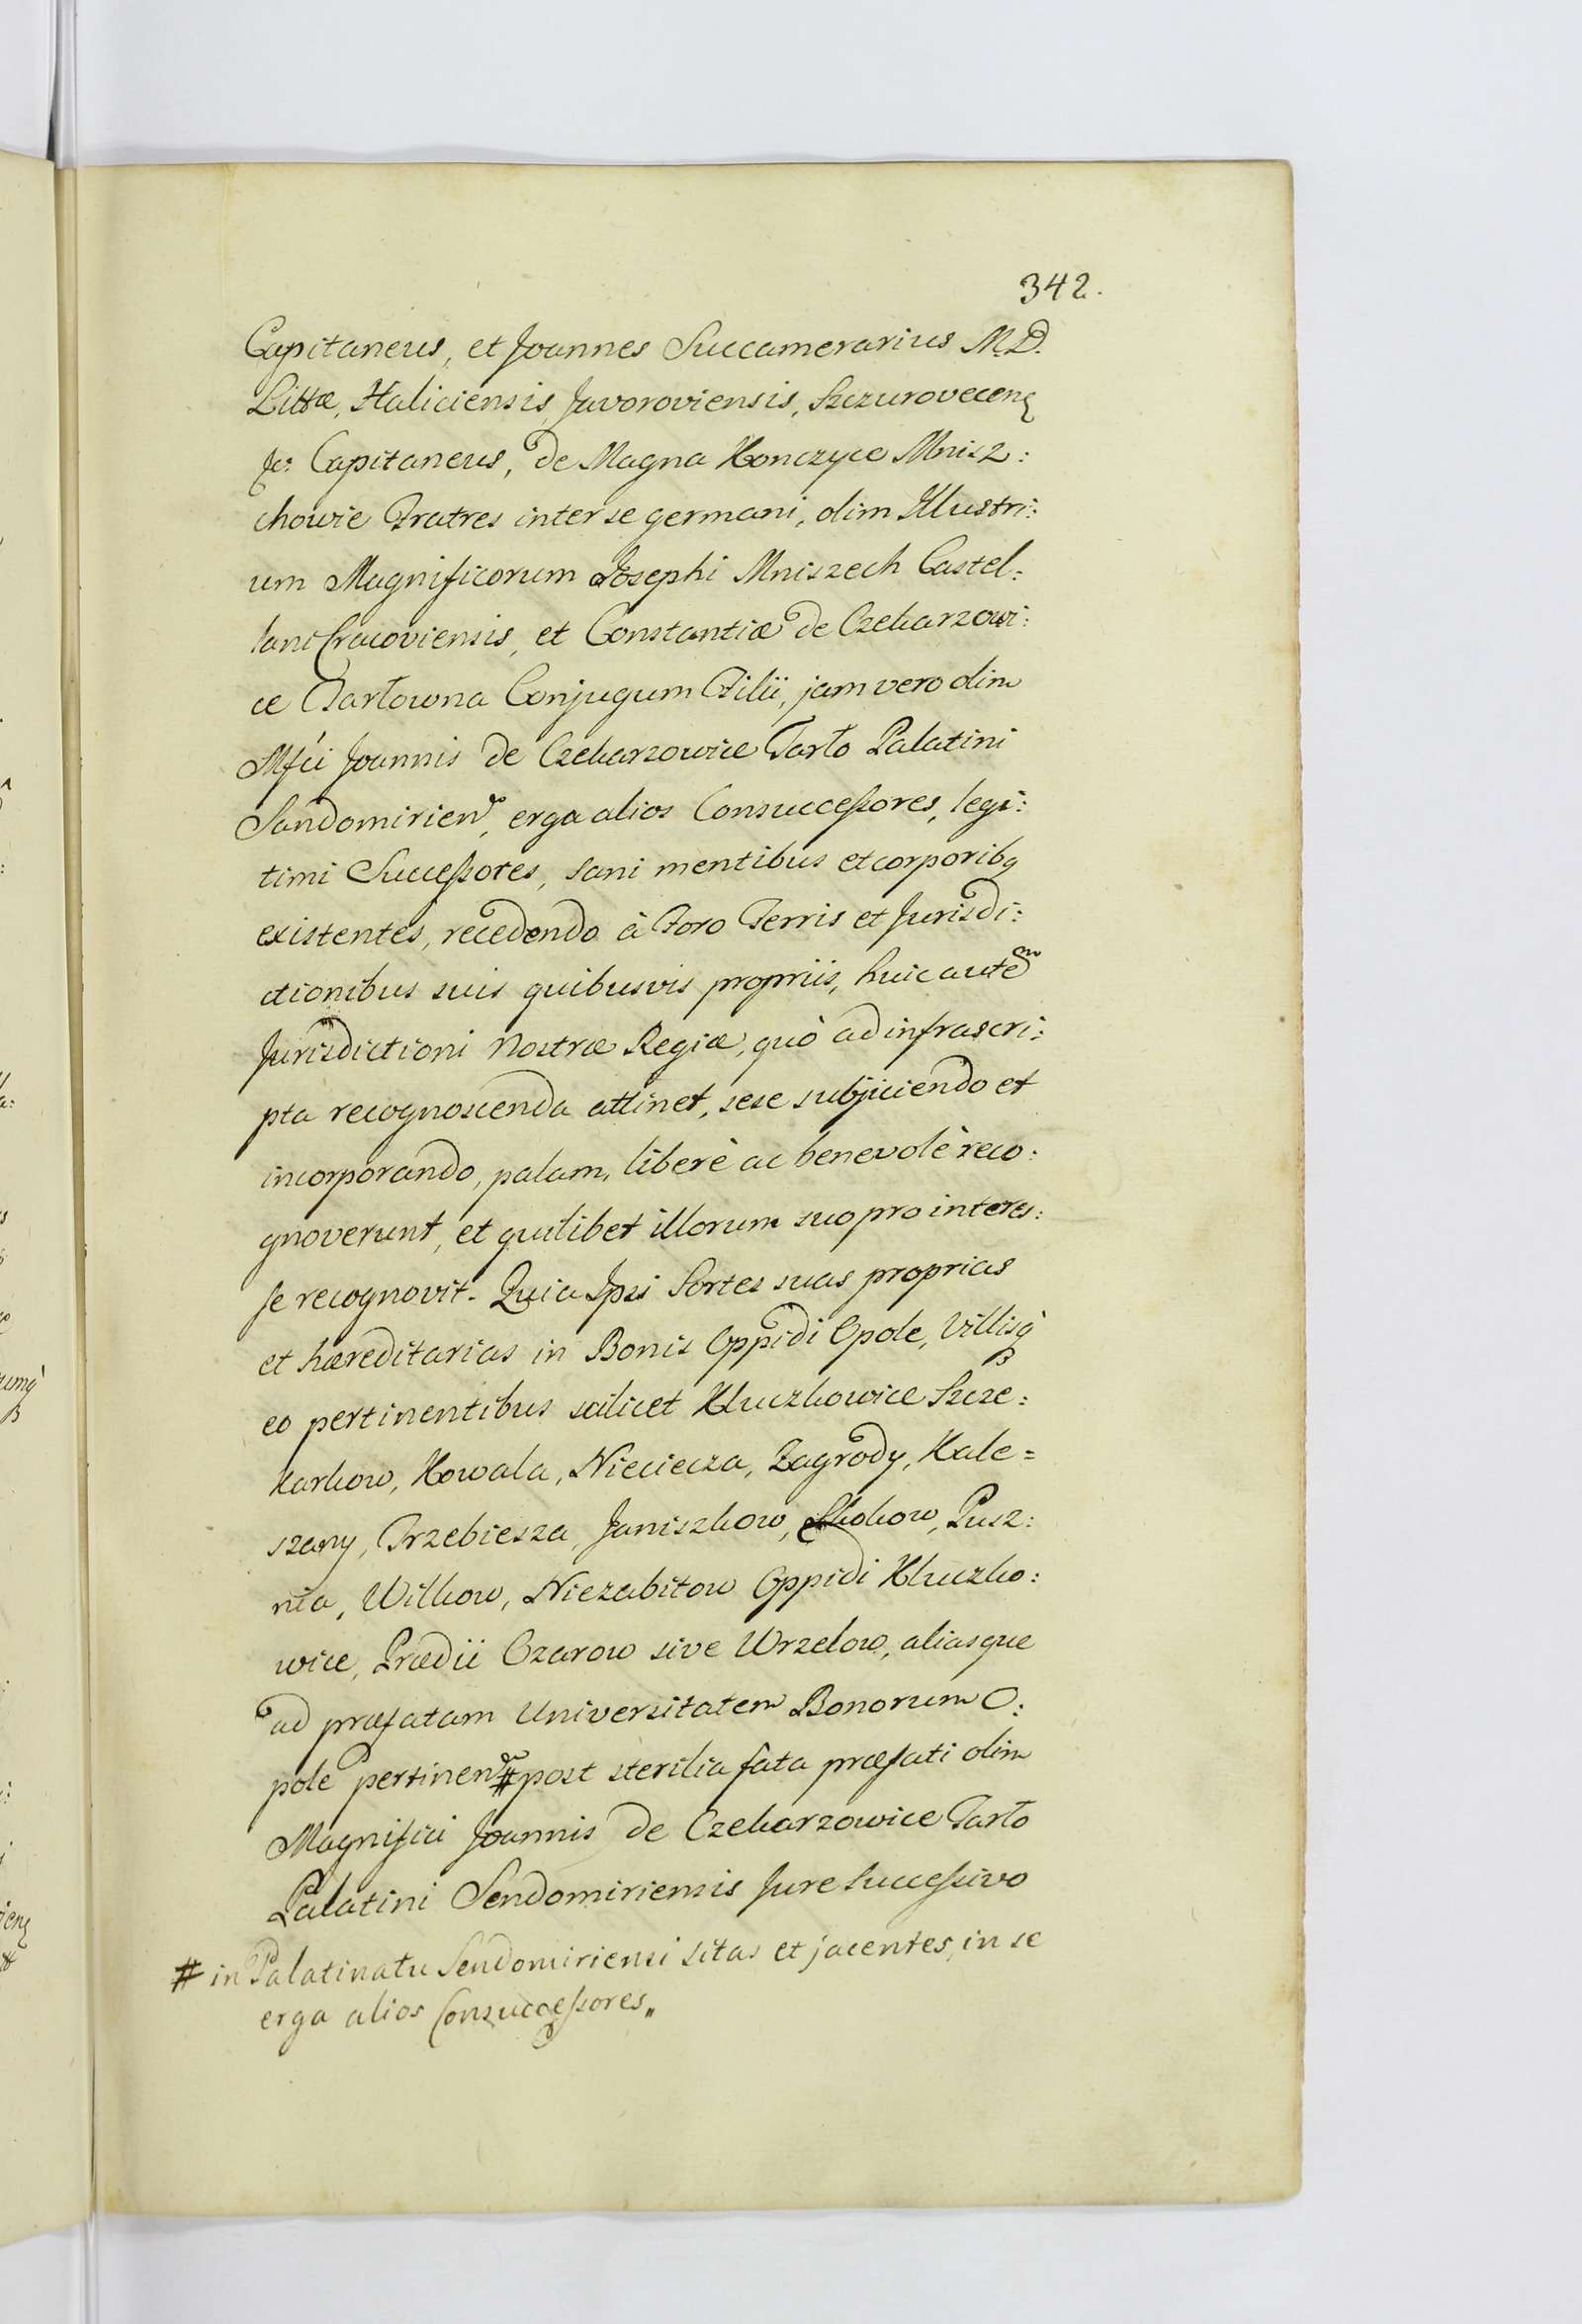 342.
Capitaneus, et Joannes Succamerarius M.D.
Littæ, Haliciensis Javoroviensis, Szczurovecens
&c: Capitaneus, de Magna Konczyce Mnisz:
chowie Fratres inter se germani, olim Illustri:
um Magnificorum Josephi Mniszech Castel:
lani Cracoviensis, et Constantiæ de Czekarzowi:
ce Tarłowna Conjugum Filii, jam vero olim
Mfci Joannis de Czekarzowice Tarło Palatini
Sandomirien, erga alios Consuccessores, legi:
timi Successores, sani mentibus et corporibq
existentes, recedendo à Foro Terris et Jurisdi:
ctionibus suis quibusvis propriis, huic autem
Jurisdictioni Nostræ Regiæ, quò ad infrascri:
pta recognoscenda attinet, sese subjiciendo et
incorporando, palam, liberè ac benevolè reco:
gnoverunt, et quilibet illorum suo pro interes:
se recognovit. Quia Ipsi Sortes suas proprias
et hæreditarias in Bonis Oppidi Opole, Villisq
eo pertinentibus scilicet Kluczkowice Szcze:
karkow, Kowala, Niecicza, Zagrody, Kale=
szany, Trzebiesza, Janiszkow, Skokow, Pusz:
nia, Wilkow, Niezabitow Oppidi Kluczko:
wice, Prædii Ozarow sive Wrzelow, aliasque
ad præfatam Universitatem Bonorum O:
pole pertinen # post sterilia fata præfati olim
Magnifici Joannis de Czekarzowice Tarło
Palatini Sendomiriensis Jure Successivo
# in Palatinatu Sendomiriensi sitas et jacentes, in se
erga alios Consuccessores„